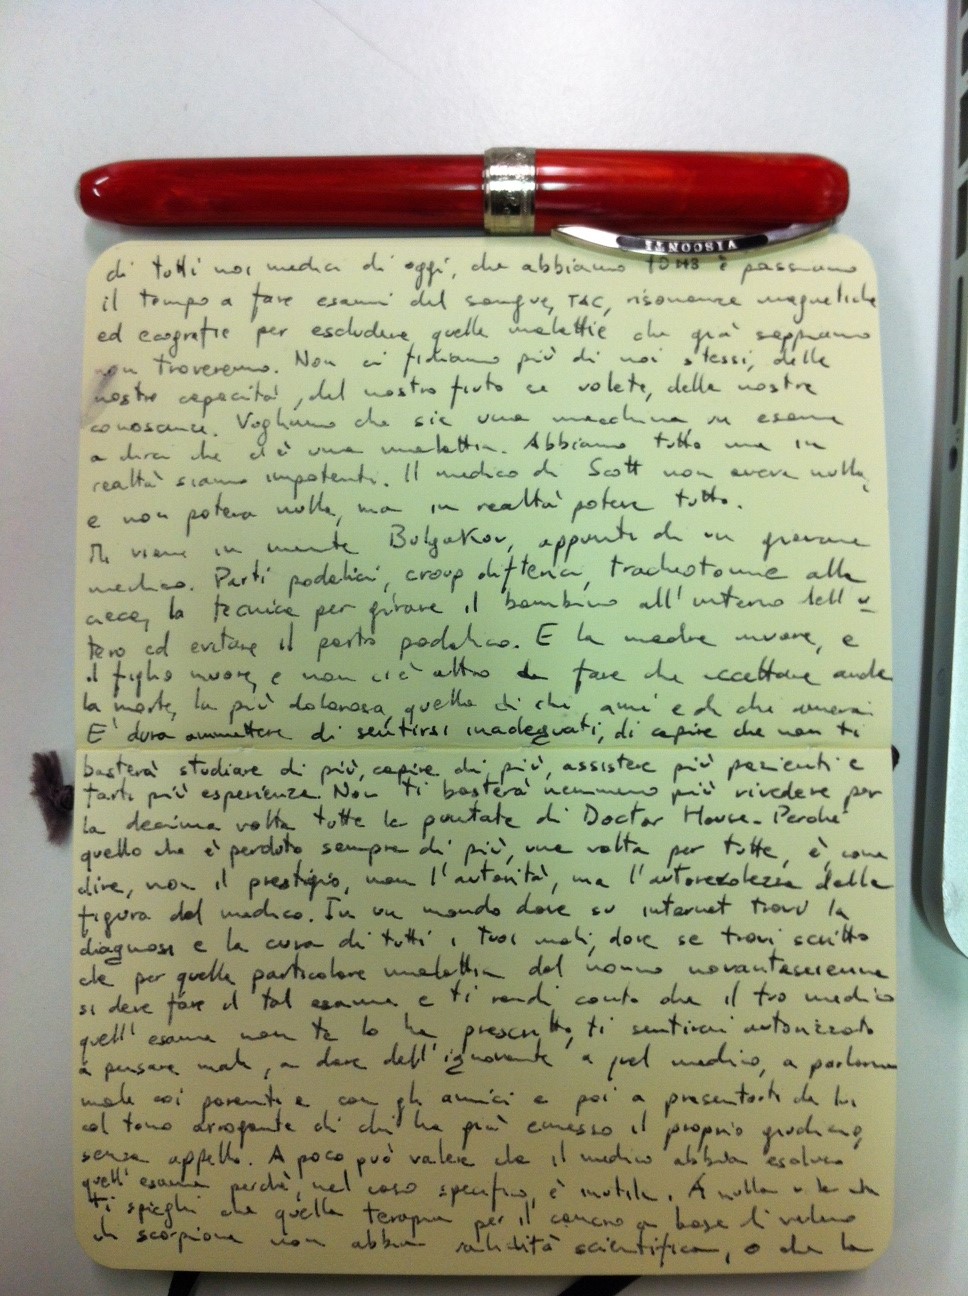 VISCONTI
di tutti noi medici di oggi, che abbiamo e passiamo
il tempo a fare esami del sangue, TAC, risonanze magnetiche
ed ecografie per escludere quelle malattie che già sappiamo
non troveremo. Non ci fidiamo più di noi stessi, delle
nostre capacità, del nostro fiuto se volete, delle nostre
conoscenze. Vogliamo che sia una macchina o un esame
a dirci che c'è una malattia. Abbiamo tutto ma in
realtà siamo impotenti. Il medico di Scott non aveva nulla,
e non poteva nulla, ma in realtà poteva tutto.
Mi viene in mente Bulgakov, appunti di un giovane
medico. Parti podalici, croup difterici, tracheotomie alla
cieca, la tecnica per girare il bambino all'interno dell'u-
tero ed evitare il parto podalico. E la madre muore, e
il figlio muore, e non c'è altro da fare che accettare anche
la morte, la più dolorosa, quella di chi ami e di chi amerai.
E' dura ammettere di sentirsi inadeguati, di capire che non ti
basterà studiare di più, capire di più, assistere più pazienti e
farti più esperienza. Non ti basterà nemmeno più rivedere per
la decima volta tutte le puntate di Doctor House. Perché
quello che è perduto sempre di più, una volta per tutte, è, come
dire, non il prestigio, non l'autorità, ma l'autorevolezza della
figura del medico. In un mondo dove su internet trovi la
diagnosi e la cura di tutti i tuoi mali, dove se trovi scritto
che per quella particolare malattia del nonno novantaseienne
si deve fare il tal esame e ti rendi conto che il tuo medico
quell'esame non te lo ha prescritto, ti sentirai autorizzato
a pensare male, a dare dell'ignorante a quel medico, a parlarne
male coi parenti e con gli amici e poi a presentarti da lui
col tono arrogante di chi ha già emesso il proprio giudizio,
senza appello. A poco può valere che il medico abbia escluso
quell'esame perché, nel caso specifico, è inutile. A nulla vale che
ti spieghi che quella terapia per il cancro a base di veleno
di scorpione non abbia validità scientifica, o che la